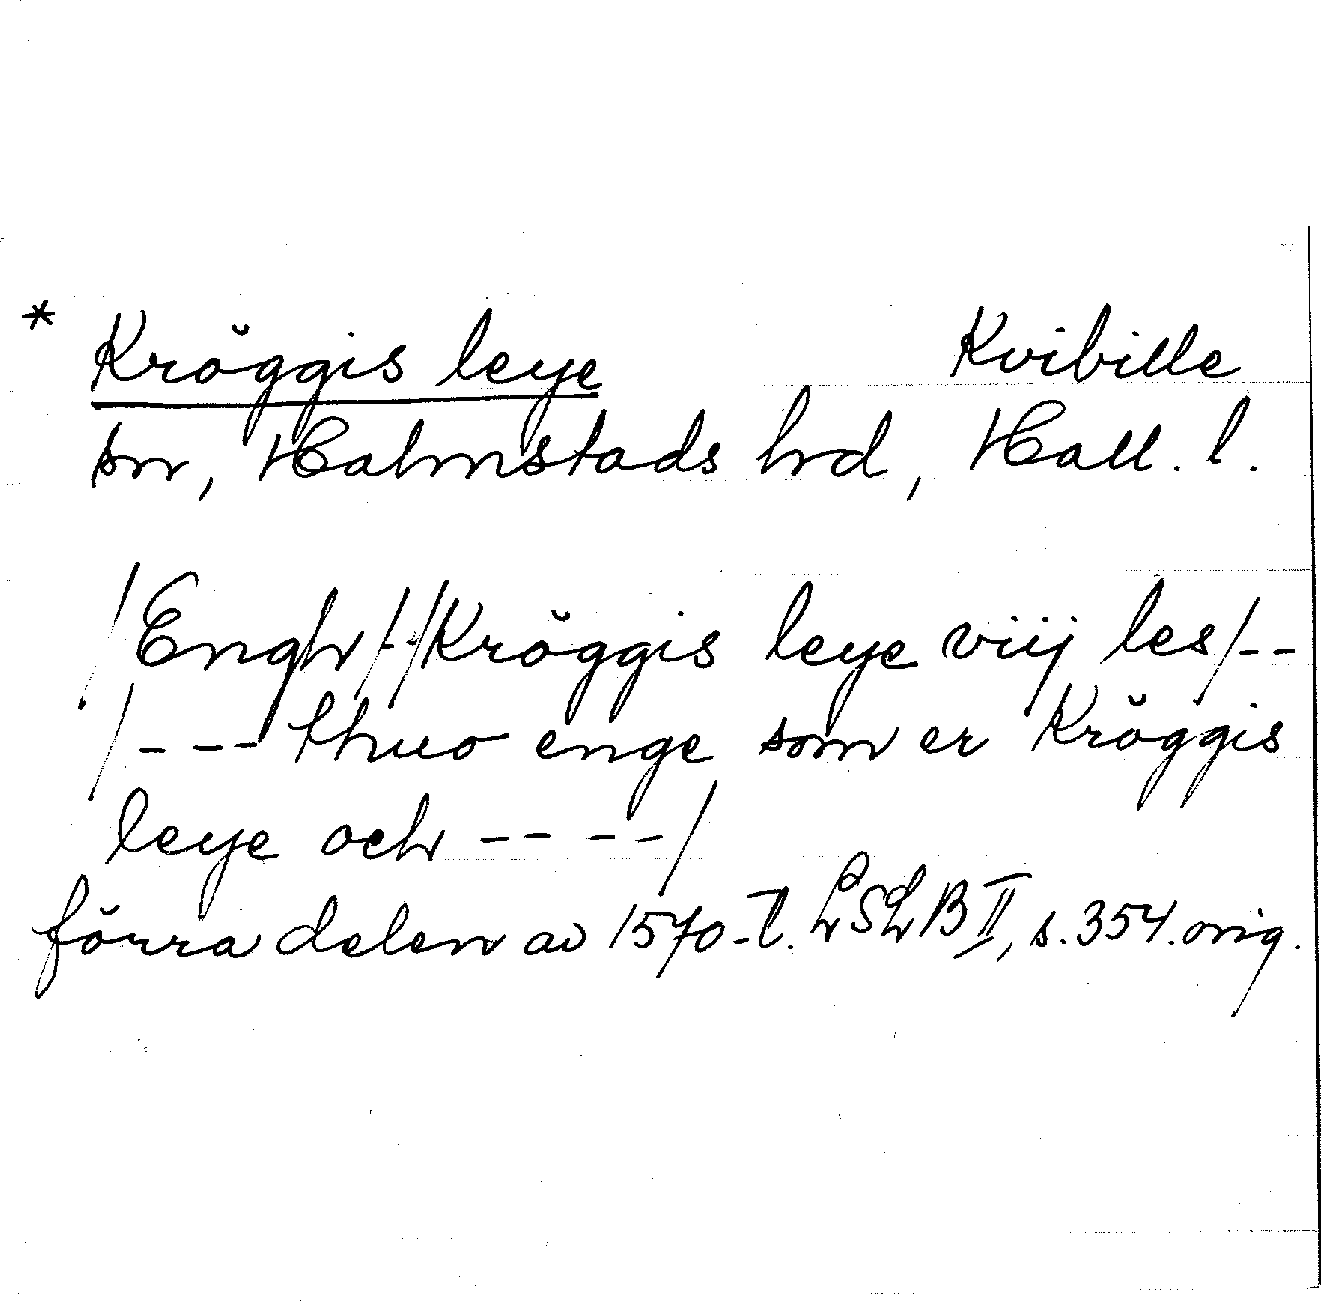 * Kröggis leye Kvibille
sn, Halmstads hrd, Hall. l.
/Engh/-/Kröggis leye viij les/--
/--- thuo enge som er Kröggis
leye och -- --/
förra delen av 1570-t. LSLB II, s. 354. orig.